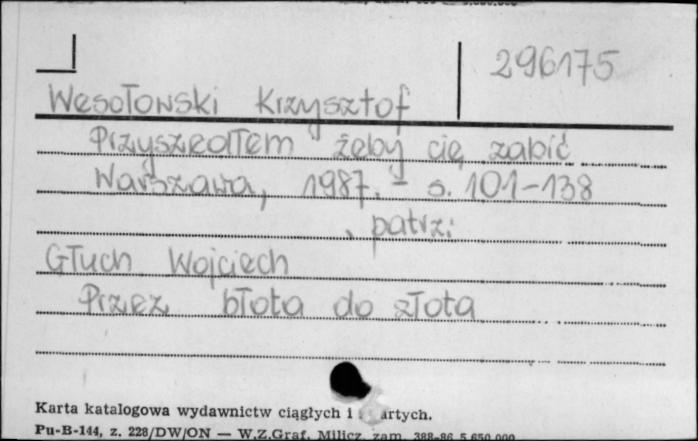 296175
Wesołowski Krzysztof
Przyszedłem żeby cię zabić
Warszawa, 1987. - s. 101-138
, patrz:
Głuch Wojciech
Przez błota do złota
Karta katalogowa wydawnictw ciągłych i
Pu-B-144, z. 228/DW/ON — W.Z.Graf. Milicz, zam. 388-86 5.650.000